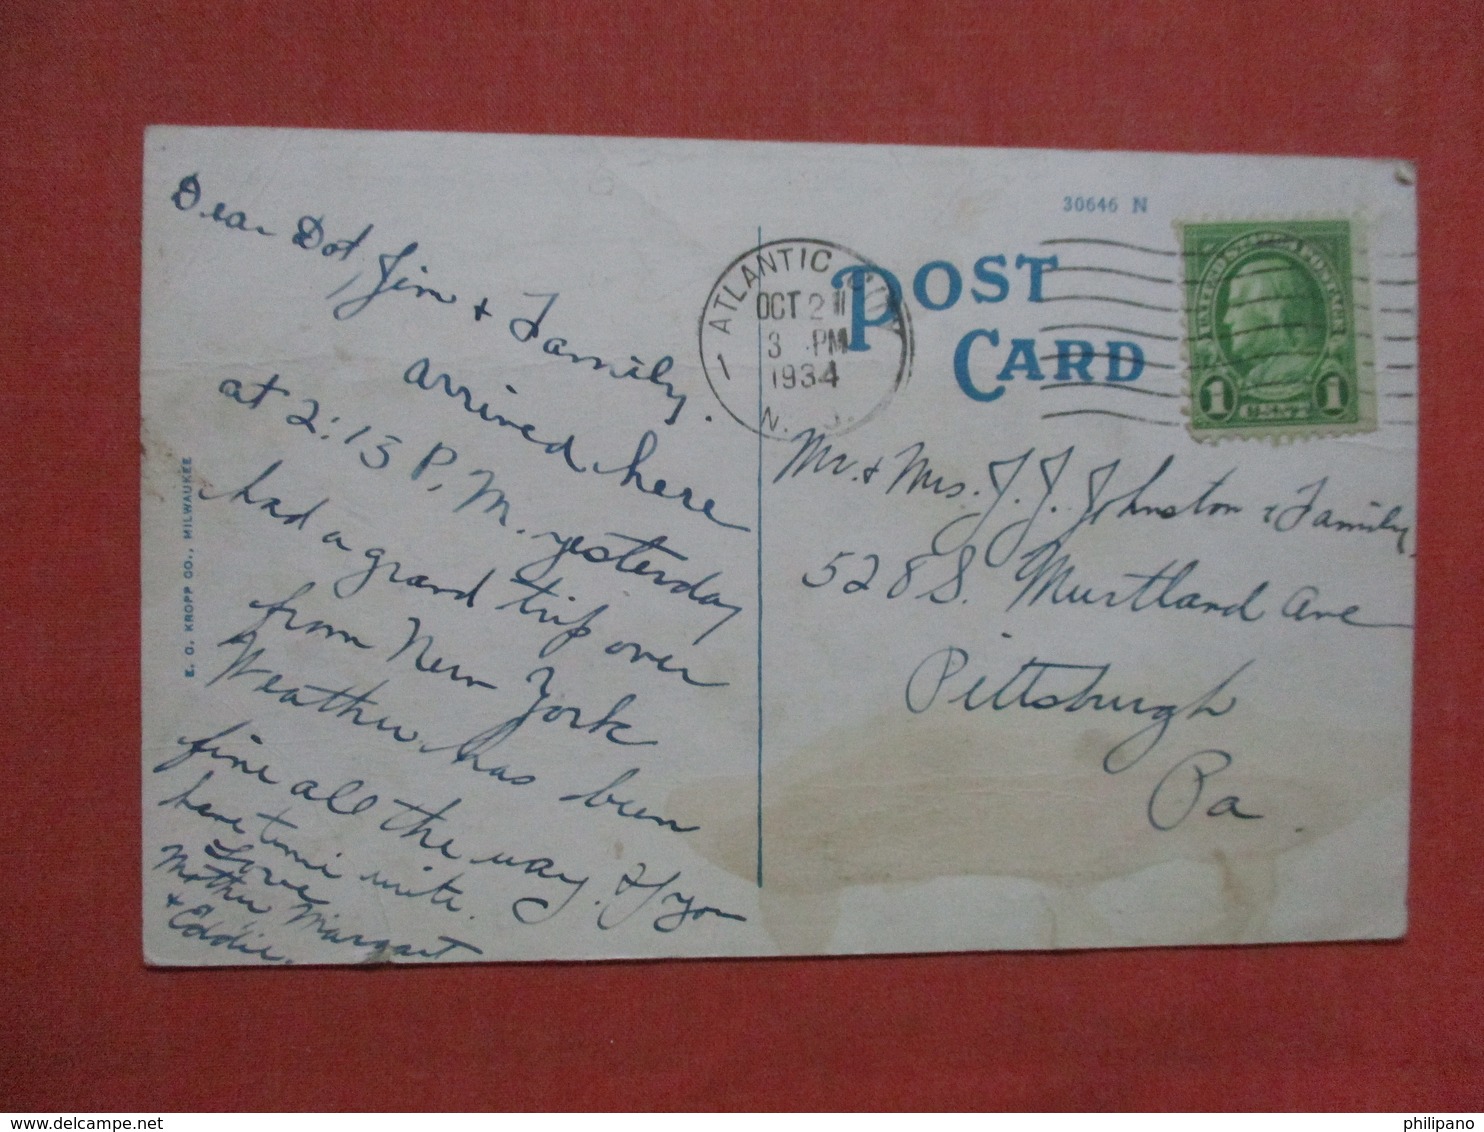 Dear Dot, Jim + Family.
arrived here
at 2:15 P.M. yesterday
had a grand trip over
from New York
Weather has been
fine all the way. If you
have time write.
Love
Mother Margart
+ Eddie.
E. C. KROPP CO., MILWAUKEE
30646 N
POST
CARD
ATLANTIC CITY
OCT 2
3 PM
1934
N. J.
UNITED STATES POSTAGE
1 1
Mr. + Mrs. J. J. Johnston + Family
528 S. Murtland Ave
Pittsburgh
Pa.
www.delcampe.net
philipano